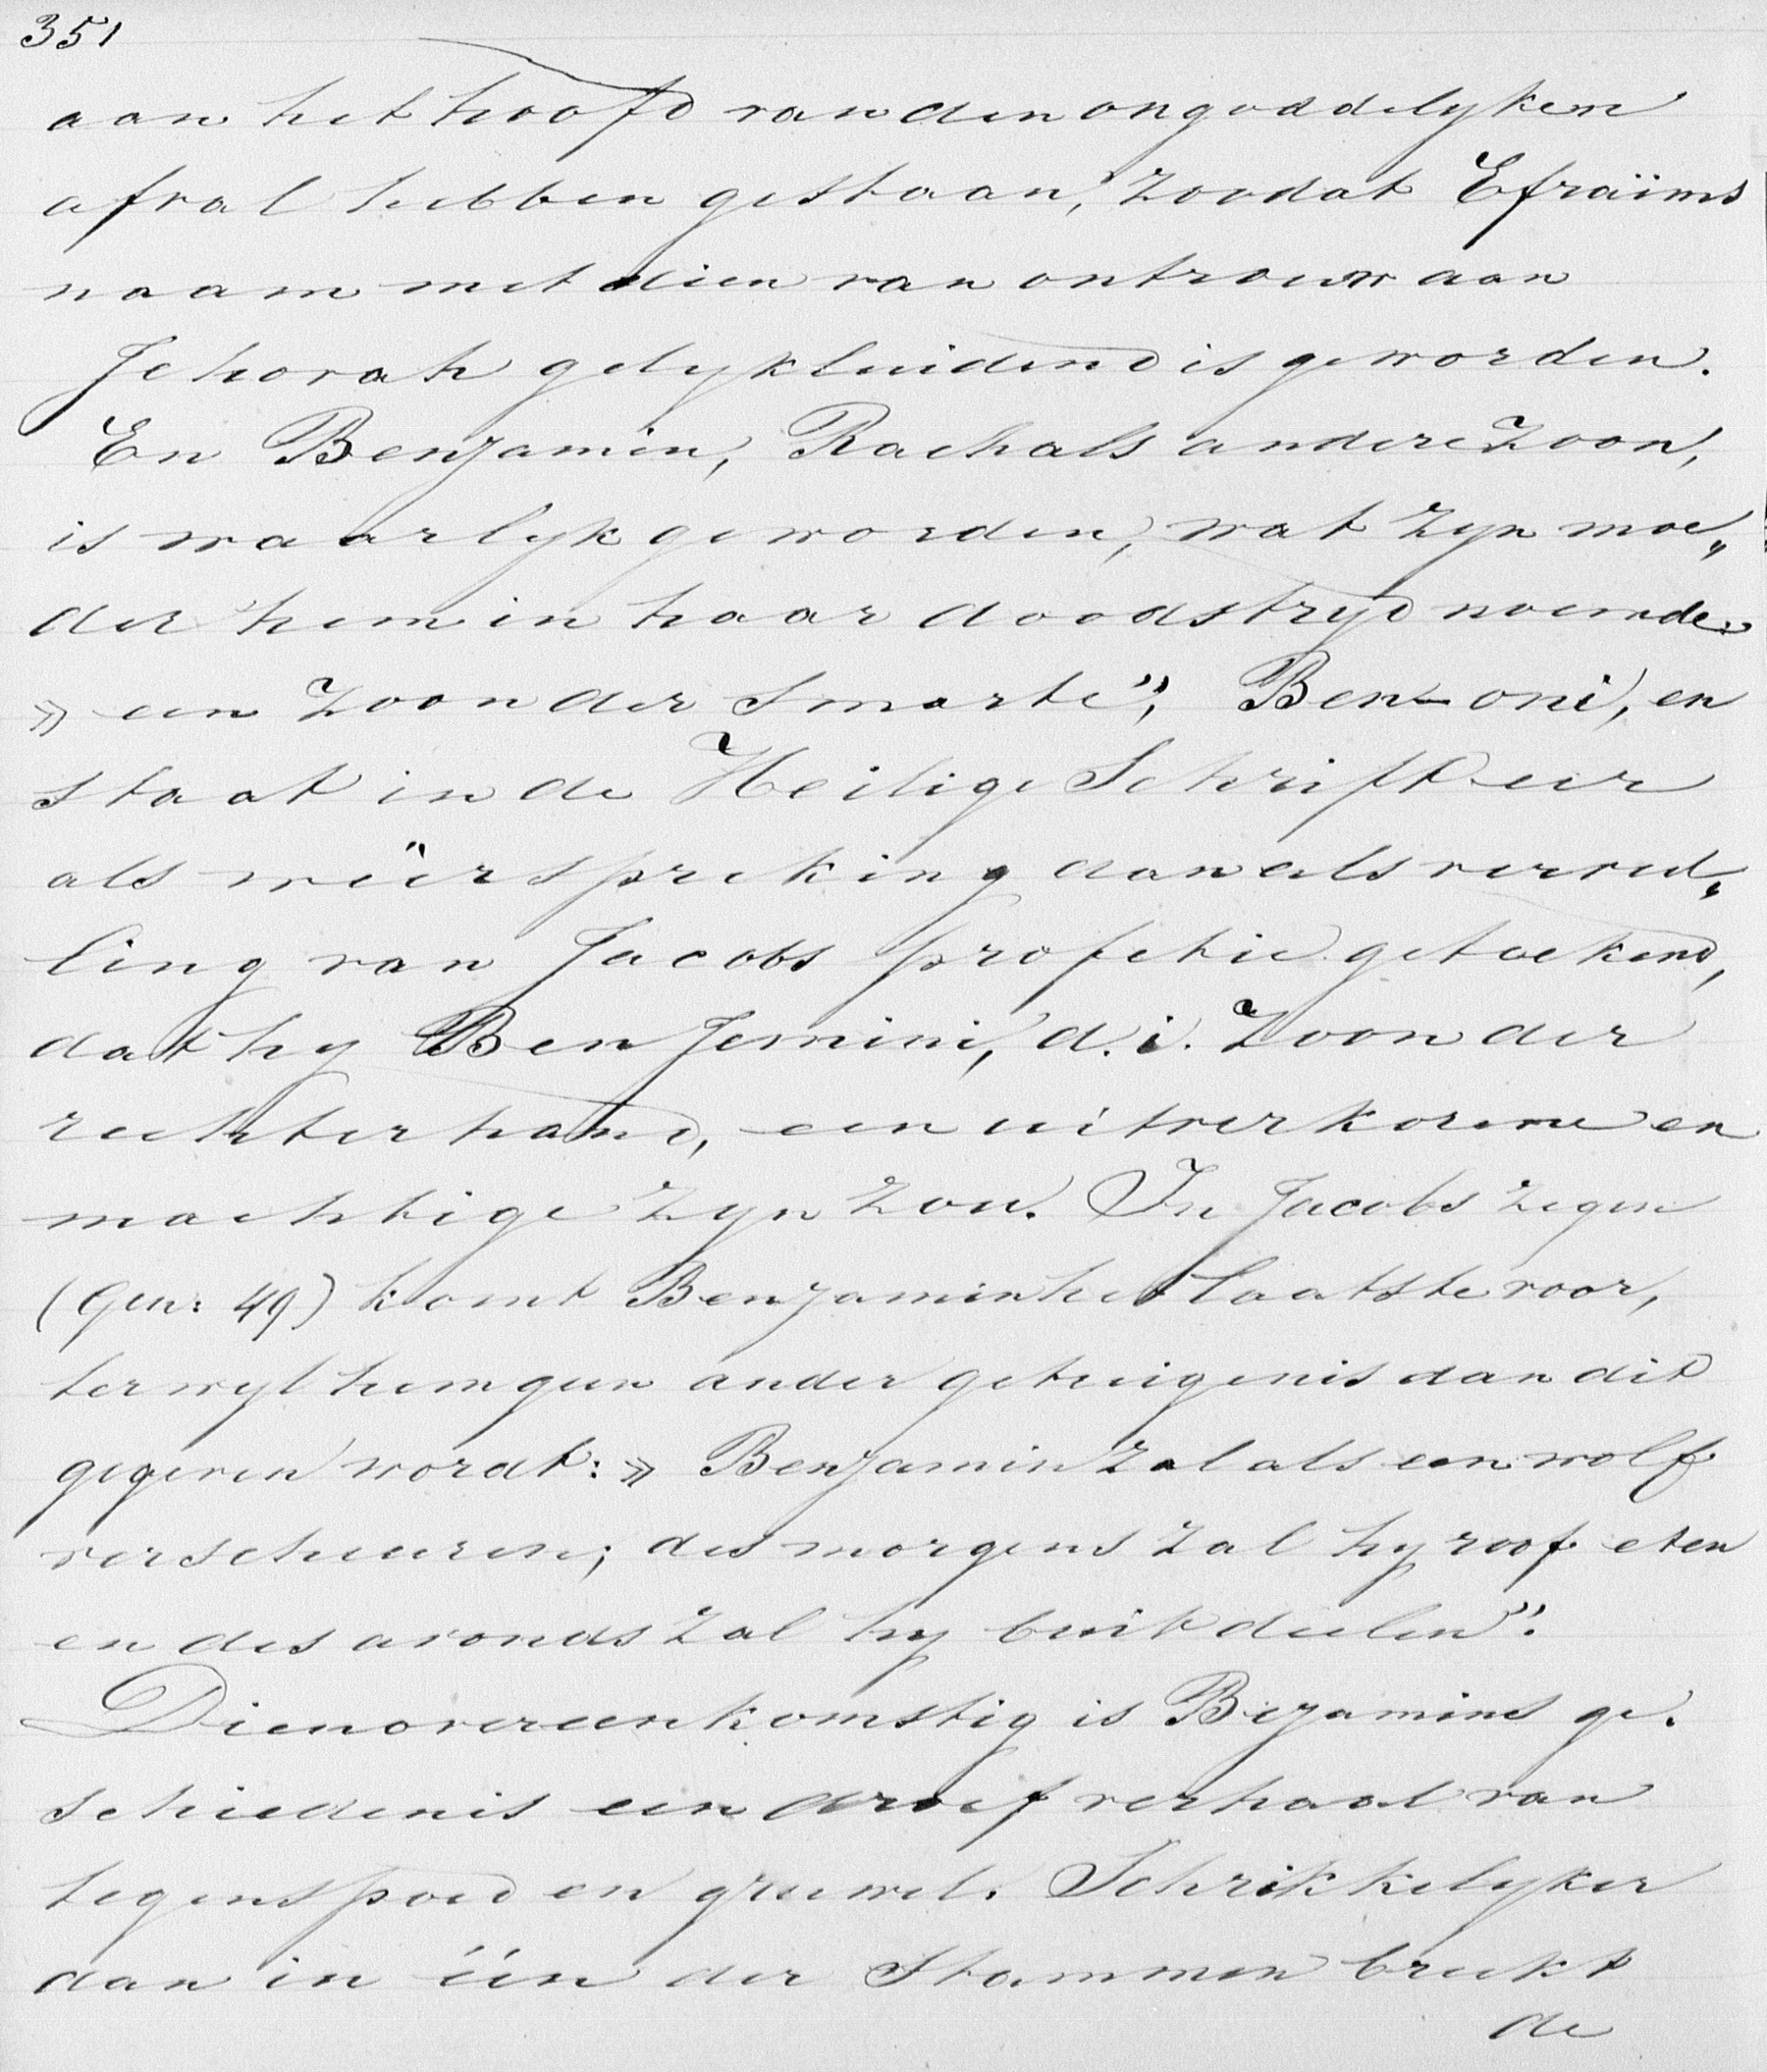 351
aan het hoofd van den ongoddelyken
afval hebben gestaan, zoodat Efraïms
naam met dien van ontrouw aan
Jehovah gelykluidend is geworden.
En Benjamin, Rachals andere Zoon,
is waarlyk geworden, wat zyn moe„
der hem in haar doodstryd noemde:
» een Zoon der Smarte”, Ben-oni, en
staat in de Heilige Schrift eer
als weêrspreking dan als vervul„
ling van Jacobs profetie getoekend,
dat hy Ben Jemini, d.i. Zoon der
rechterhand, een uitverkorene en
machtige zyn zou. In Jacobs zegen
(Gen: 49) komt Benjamin het laatste voor,
terwyl hem geen ander getuigenis dan dit
gegeven wordt: » Benjamin zal als een wolf
verscheuren; des morgens zal hy roof eten
en des avonds zal hy buit deelen”.
Dienovereenkomstig is Bejamins ge.
schiedenis een droef verhaal van
tegenspoed en gruwel. Schrikkelyker
dan in één der Stammen breekt
de